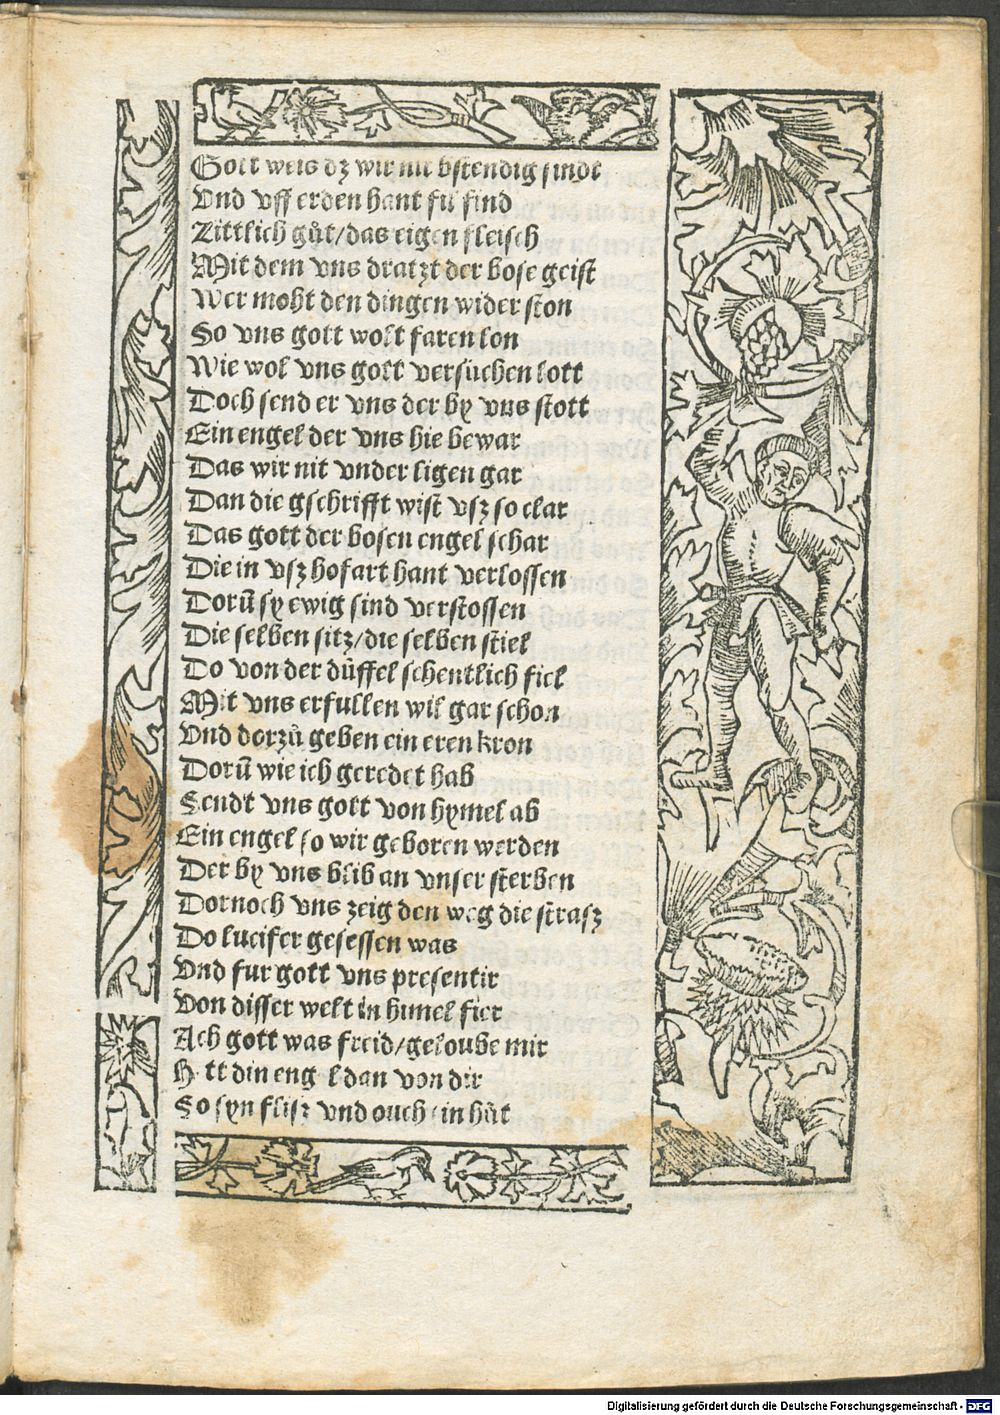 Gott weis dz wir nit bstendig sindt
Vnd vff erden hant fü find
Zittlich gůt/das eigen fleisch
Mit dem vns dratzt der bose geist
Wer moht den dingen wider ston
So vns gott wolt faren lon
Wie wol vns gott versuchen lott
Doch send er vns der by vns stott
Ein engel der vns hie bewar
Das wir nit vnder ligen gar
Dan die gschrifft wist vsz so clar
Das gott der bosen engel schar
Die in vsz hofart hant verlossen
Dorū sy ewig sind verstossen
Die selben sitz/die selben stiel
Do von der düffel schentlich fiel
Mit vns erfullen wil gar schon
Vnd dorzů geben ein eren kron
Dorū wie ich geredet hab
Sendt vns gott von hymel ab
Ein engel so wir geboren werden
Der by vns blib an vnser sterben
Dornoch vns zeig den weg die strasz
Do lucifer gesessen was
Vnd fur gott vns presentir
Von disser welt in himel fier
Ach gott was freid/geloube mir
H tt din eng l dan von dir
So syn flisz vnd ouch sin hůt
Digitalisierung gefördert durch die Deutsche Forschungsgemeinschaft - DFG